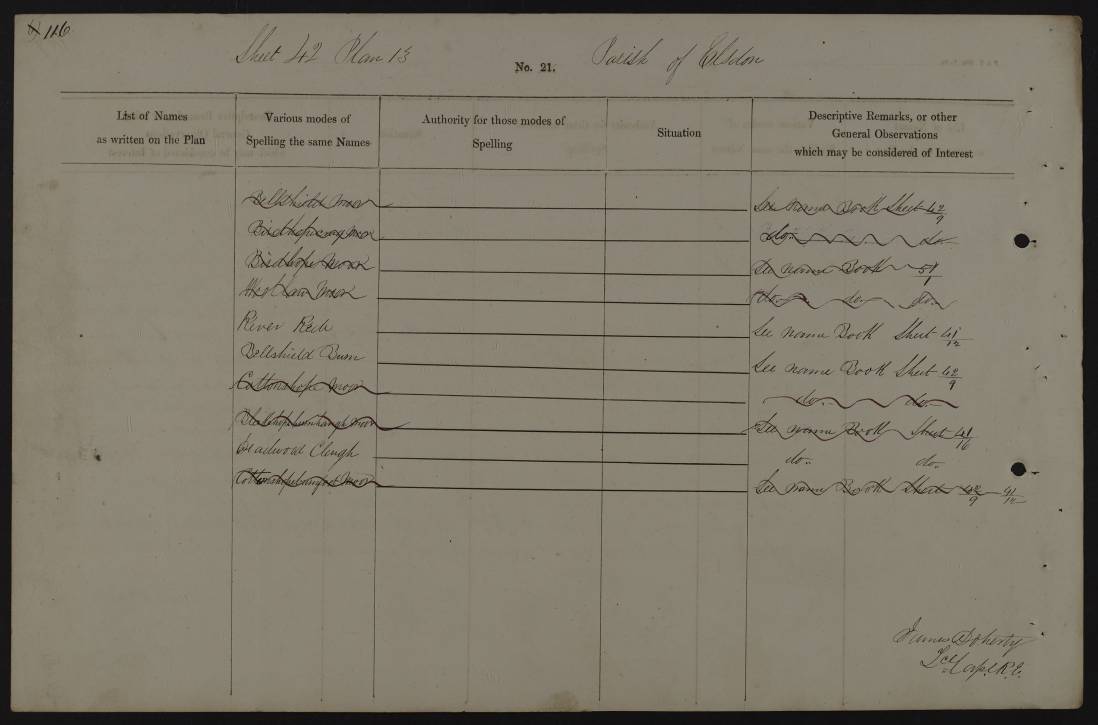 116
Sheet 42 Plan 13 No. 21. Parish of Elsdon
List of Names as written on the Plan
Various modes of Spelling the same Names
Authority for those modes of Spelling
Situation
Descriptive Remarks, or other General Observations which may be considered of Interest
Bellshield Moor See name Book Sheet 42/9
Birdhopecraig Moor do. do.
Birdhope Moor See name Book 51/1
Moor do. do. do.
River Rede See name Book Sheet 41/12
Bellshield Burn See name Book Sheet 42/9
Cottonshope Moor do. do.
Blakehopeburnhaugh Moor See name Book Sheet 41/16
Cleugh do. do.
Cottonshopeburnfoot Moor See name Book Sheet 42/9 41/12
James Doherty
Lce Corpl R.E.